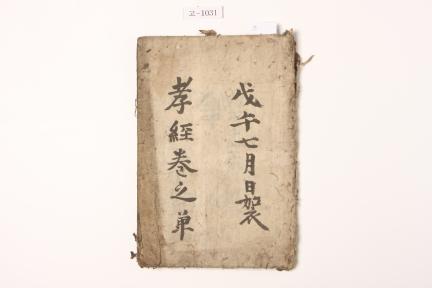 고-1031
戊午七月日加衣
孝經卷之单